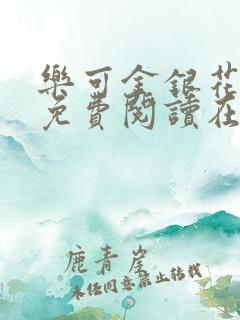 樂可金銀花
免費閱讀在
鹿青崖
未经同意禁止转载